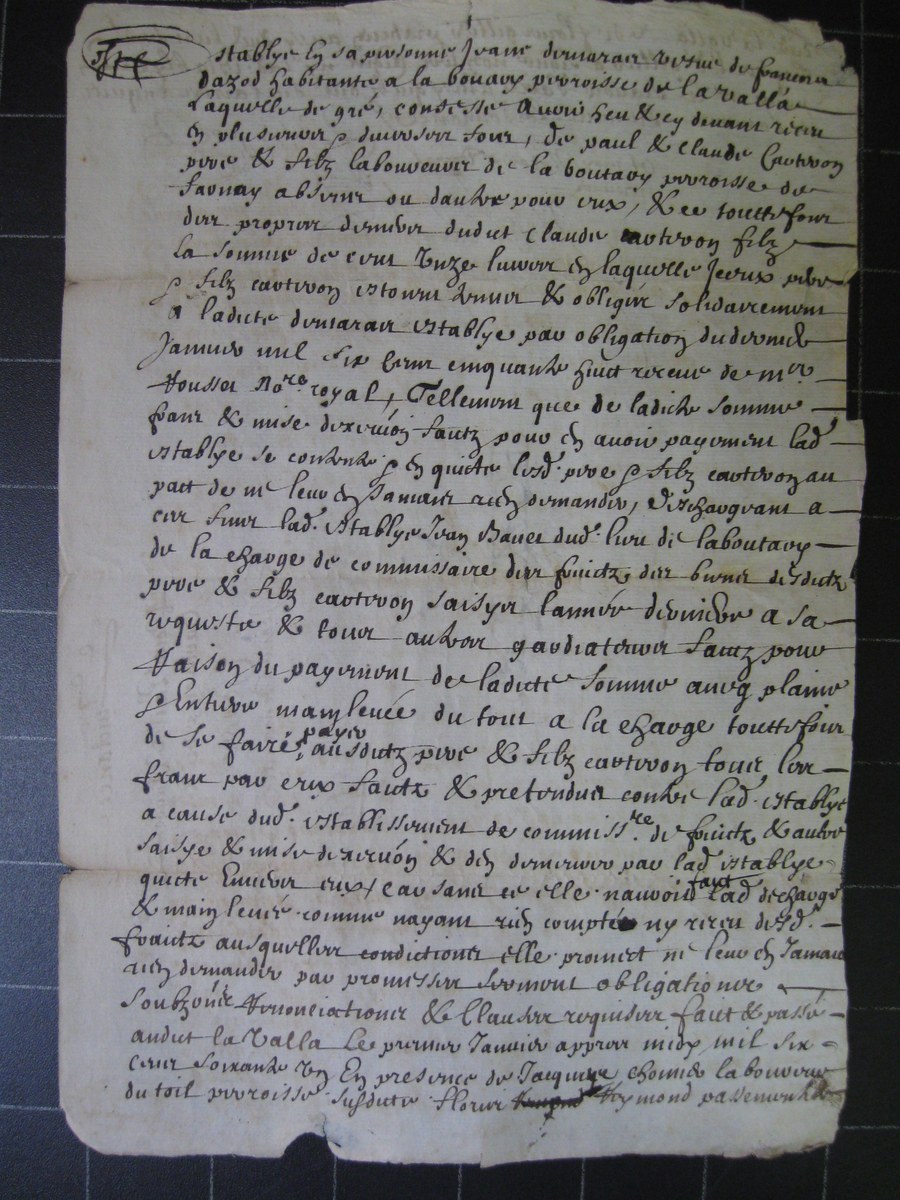 stablye en sa personne Jeane desmarais vefve de francois
dazod habitante a la bouary parroisse de lavalla
Laquelle de gré, confesse Avoir heu & cy devant receu
en plusieurs & diverses fois, de paul & Claude Cauteron
pere & filz laboureurs de la boutary parroisse de
Jarnay absens ou dautre pour eux, & ce touttesfois
des propres deniers dudict Claude cauteron filz
La somme de cent unze livres en laquelle Jceux pere
& filz cauteron estoient tenus & obligés solidairement
a ladicte desmarais establye par obligation du dernier
Janvier mil six cens cinquante huict receue de mre
Housset Nore. royal, Tellement que de ladicte somme
frais & mise dexecuon faictz pour en avoir payement lad.
establye se contente & en quicte lesd. pere & filz cauteron au
pact de ne leur en Jamais rien demander, deschargeant a
ces fins lad. establye Jean dud. lieu de laboutary
de la charge de commissaire des fruictz des biens desdictz
pere & filz cauteron saisys lannée derniere a sa
requeste & tous autres gardiateurs faictz pour
Raison du payement de ladicte somme aveq plaine
& Entiere mainlevée du tout a la charge touttesfois
de se faire payer ausdictz pere & filz cauteron tous les
frais par eux faictz & pretendus contre lad. establye
a cause dud. establissement de commissre. de fruictz & autre
saisye & mise dexecuon & den demeurer par lad. establye
quicte Envers eux, Car sans ce elle nauroit faict lad. descharge
& mainlevée comme nayant rien compté ny receu desd.
fraictz ausquelles condictions elle promect ne leur en Jamais
rien demander par promesses serment obligations
Soubznés Renonciations & Clauses requises faict & passé
audict la Valla Le premier Janvier appres midy mil six
cens soixante un En presence de Jacques chomier laboureur
du toil parroisse susdicte flory Reymond passementier